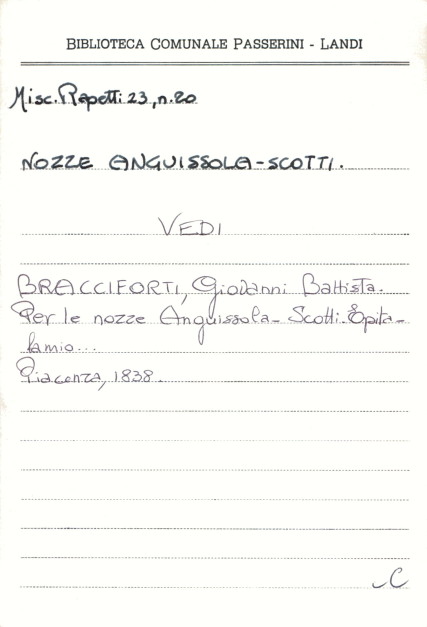 BIBLIOTECA COMUNALE PASSERINI - LANDI
Misc. Rapetti 23, n. 20
NOZZE ANGUISSOLA-SCOTTI.
VEDI
BRACCIFORTI, Giovanni Battista.
Per le nozze Anguissola-Scotti. Epita-
lamio...
Piacenza, 1838.
C